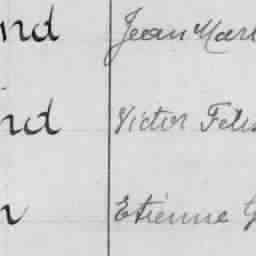 nd Jean Mar
nd Victor Feli
n Etienne G